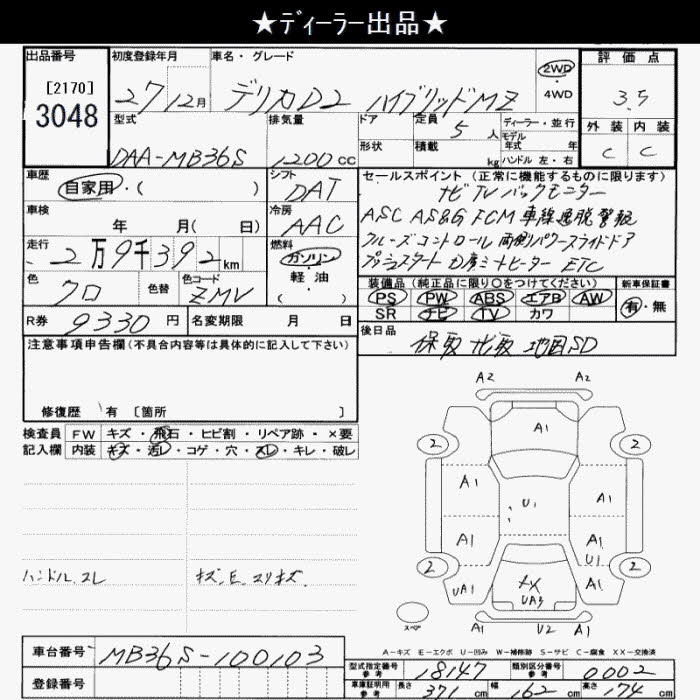 ★ディーラー出品★
出品番号 初度登録年月 車名・グレード 評価点
[2170]
3048
27 12月 デリカD2 ハイブリッドMZ 2WD 4WD 3.5
型式 排気量 ドア 定員 5人 ディーラー・並行 外装 内装
モデル年式 年
DAA-MB36S 1200cc 形状 積載 kg ハンドル 左・右 C C
車歴 シフト セールスポイント(正常に機能するものに限ります)
自家用・( ) DAT ナビ TV バックモニター
車検 冷房 ASC AS&G FCM 車線逸脱警報
年 月( 日) AAC クルーズコントロール 両側パワースライドドア
走行 燃料 プッシュスタート D席シートヒーター ETC
2万9千392km ガソリン
軽・油
( )
色 色替 色コード 装備品(純正品に限り○をつけてください) 新車保証書
クロ ZMV PS PW ABS エアB AW 有・無
SR ナビ TV カワ
R券 9330円 名変期限 月 日 後日品
保取 ナビ取 地図SD
注意事項申告欄(不具合内容等は具体的に記入して下さい)
修復歴 有 [箇所 ]
検査員 FW キズ・飛石・ヒビ割・リペア跡・×要
記入欄 内装 キズ・汚レ・コゲ・穴・スレ・キレ・破レ
ハンドルスレ キズ、E、スリキズ
A2 A2
A1
2 2
A1 A1
U1
A1 A1
U1
2 2
UA1 XX A1
UA3
スペア A1 U2 A1
A-キズ E-エクボ U-凹み W-補修跡 S-サビ C-腐食 XX-交換済
車台番号 MB36S-100103
登録番号
型式指定番号 参考 18147 類別区分番号 参考 0002
車庫証明用 参考 長さ 371cm 幅 162cm 高さ 174cm